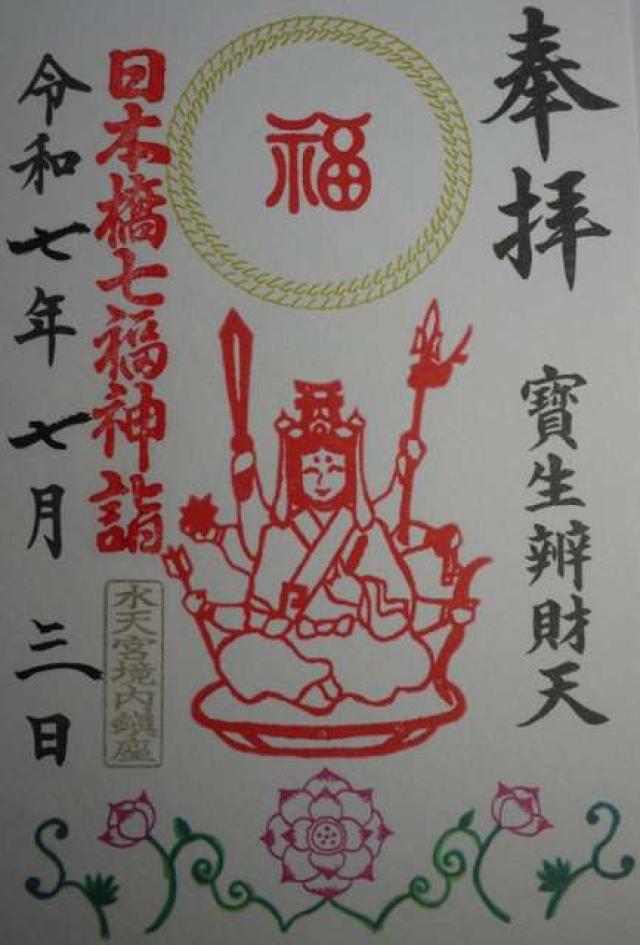 奉拝
寶生辨財天
福
日本橋七福神詣
水天宮境内鎮座
令和七年七月三日